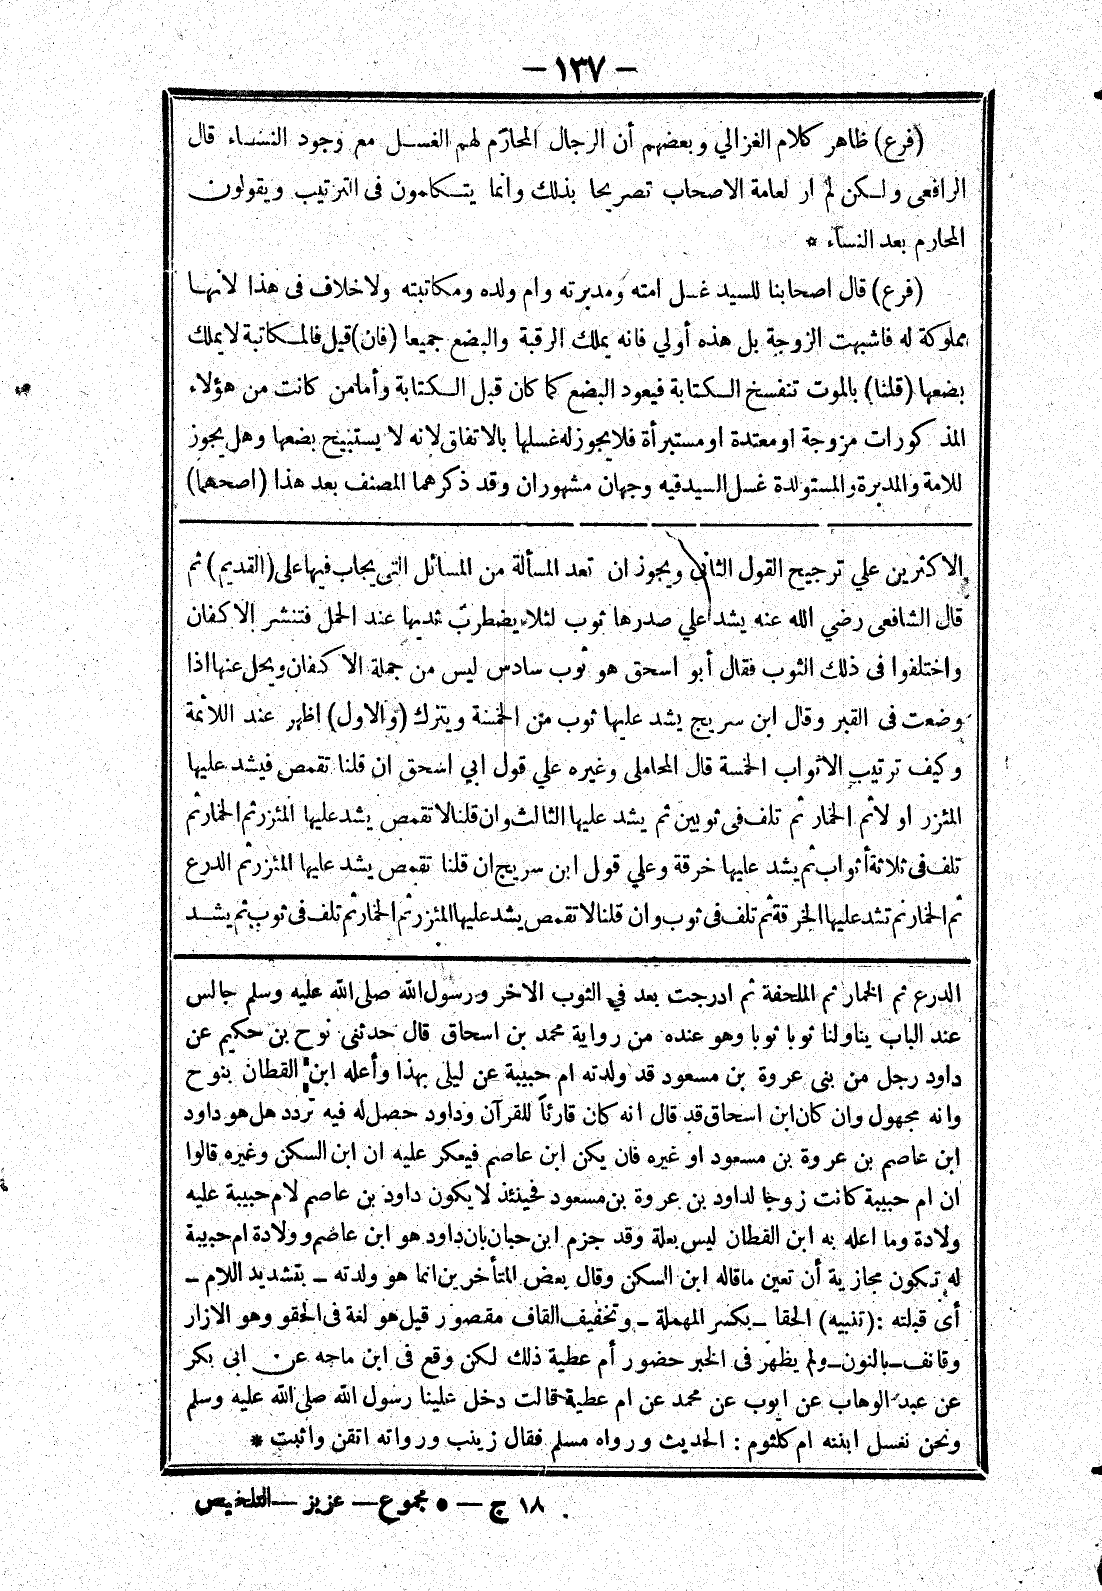 — ١٣٧ —
(فرع) ظاهر كلام الغزالي وبعضهم أن الرجال المحارم لهم الغسل مع وجود النساء قال
الرافعى ولكن لم ار لعامة الاصحاب تصريحا بذلك وانما يتكلمون فى الترتيب ويقولون
المحارم بعد النساء *
(فرع) قال اصحابنا للسيد غسل امته ومدبرته وام ولده ومكاتبته ولا خلاف فى هذا لانها
مملوكة له فاشبهت الزوجة بل هذه أولي فانه يملك الرقبة والبضع جميعا (فان) قيل فالمكاتبة لا يملك
بضعها (قلنا) بالموت تنفسخ الكتابة فيعود البضع كما كان قبل الكتابة وأما من كانت من هؤلاء
المذكورات مزوجة او معتدة او مستبرأة فلا يجوز له غسلها بالاتفاق لانه لا يستبيح بضعها وهل يجوز
للامة والمدبرة والمستولدة غسل السيد فيه وجهان مشهوران وقد ذكرهما المصنف بعد هذا (اصحهما)
الاكثرين علي ترجيح القول الثانى ويجوز ان تعد المسألة من المسائل التى يجاب فيها على (القديم) ثم
قال الشافعى رضي الله عنه يشد علي صدرها ثوب لئلا يضطرب ثديها عند الحمل فتنشر الاكفان
واختلفوا فى ذلك الثوب فقال أبو اسحق هو ثوب سادس ليس من جملة الاكفان ويحل عنها اذا
وضعت فى القبر وقال ابن سريج يشد عليها ثوب من الخمسة ويترك (والاول) اظهر عند الائمة
وكيف ترتيب الاثواب الخمسة قال المحاملى وغيره علي قول ابي اسحق ان قلنا تقمص فيشد عليها
المئزر او لا ثم الخمار ثم تلف فى ثوبين ثم يشد عليها الثالث وان قلنا لا تقمص يشد عليها المئزر ثم الخمار ثم
تلف فى ثلاثة أثواب ثم يشد عليها خرقة وعلي قول ابن سريج ان قلنا تقمص يشد عليها المئزر ثم الدرع
ثم الخمار ثم تشد عليها الخرقة ثم تلف فى ثوب وان قلنا لا تقمص يشد عليها المئزر ثم الخمار ثم تلف فى ثوب ثم يشد
الدرع ثم الخمار ثم الملحفة ثم ادرجت بعد في الثوب الاخر ورسول الله صلى الله عليه وسلم جالس
عند الباب يناولنا ثوبا ثوبا وهو عنده من رواية محمد بن اسحاق قال حدثنى نوح بن حكيم عن
داود رجل من بنى عروة بن مسعود قد ولدته ام حبيبة عن ليلى بهذا وأعله ابن القطان بنوح
وانه مجهول وان كان ابن اسحاق قد قال انه كان قارئاً للقرآن وداود حصل له فيه تردد هل هو داود
ابن عاصم بن عروة بن مسعود او غيره فان يكن ابن عاصم فيعكر عليه ان ابن السكن وغيره قالوا
ان ام حبيبة كانت زوجا لداود بن عروة بن مسعود فحينئذ لا يكون داود بن عاصم لام حبيبة عليه
ولادة وما اعله به ابن القطان ليس بعلة وقد جزم ابن حبان بان داود هو ابن عاصم وولادة ام حبيبة
له تكون مجازية أن تعين ما قاله ابن السكن وقال بعض المتأخرين انما هو ولدته ـ بتشديد اللام ـ
أى قبلته : (تنبيه) الحقا ـ بكسر المهملة ـ وتخفيف القاف مقصور قيل هو لغة فى الحقو وهو الازار
وقانف ـ بالنون ـ ولم يظهر فى الخبر حضور أم عطية ذلك لكن وقع فى ابن ماجه عن ابى بكر
عن عبد الوهاب عن ايوب عن محمد عن ام عطية قالت دخل علينا رسول الله صلى الله عليه وسلم
ونحن نغسل ابنته ام كلثوم : الحديث ورواه مسلم فقال زينب ورواته اتقن واثبت *
١٨ ج — ٥ مجموع — عزيز — التلخيص